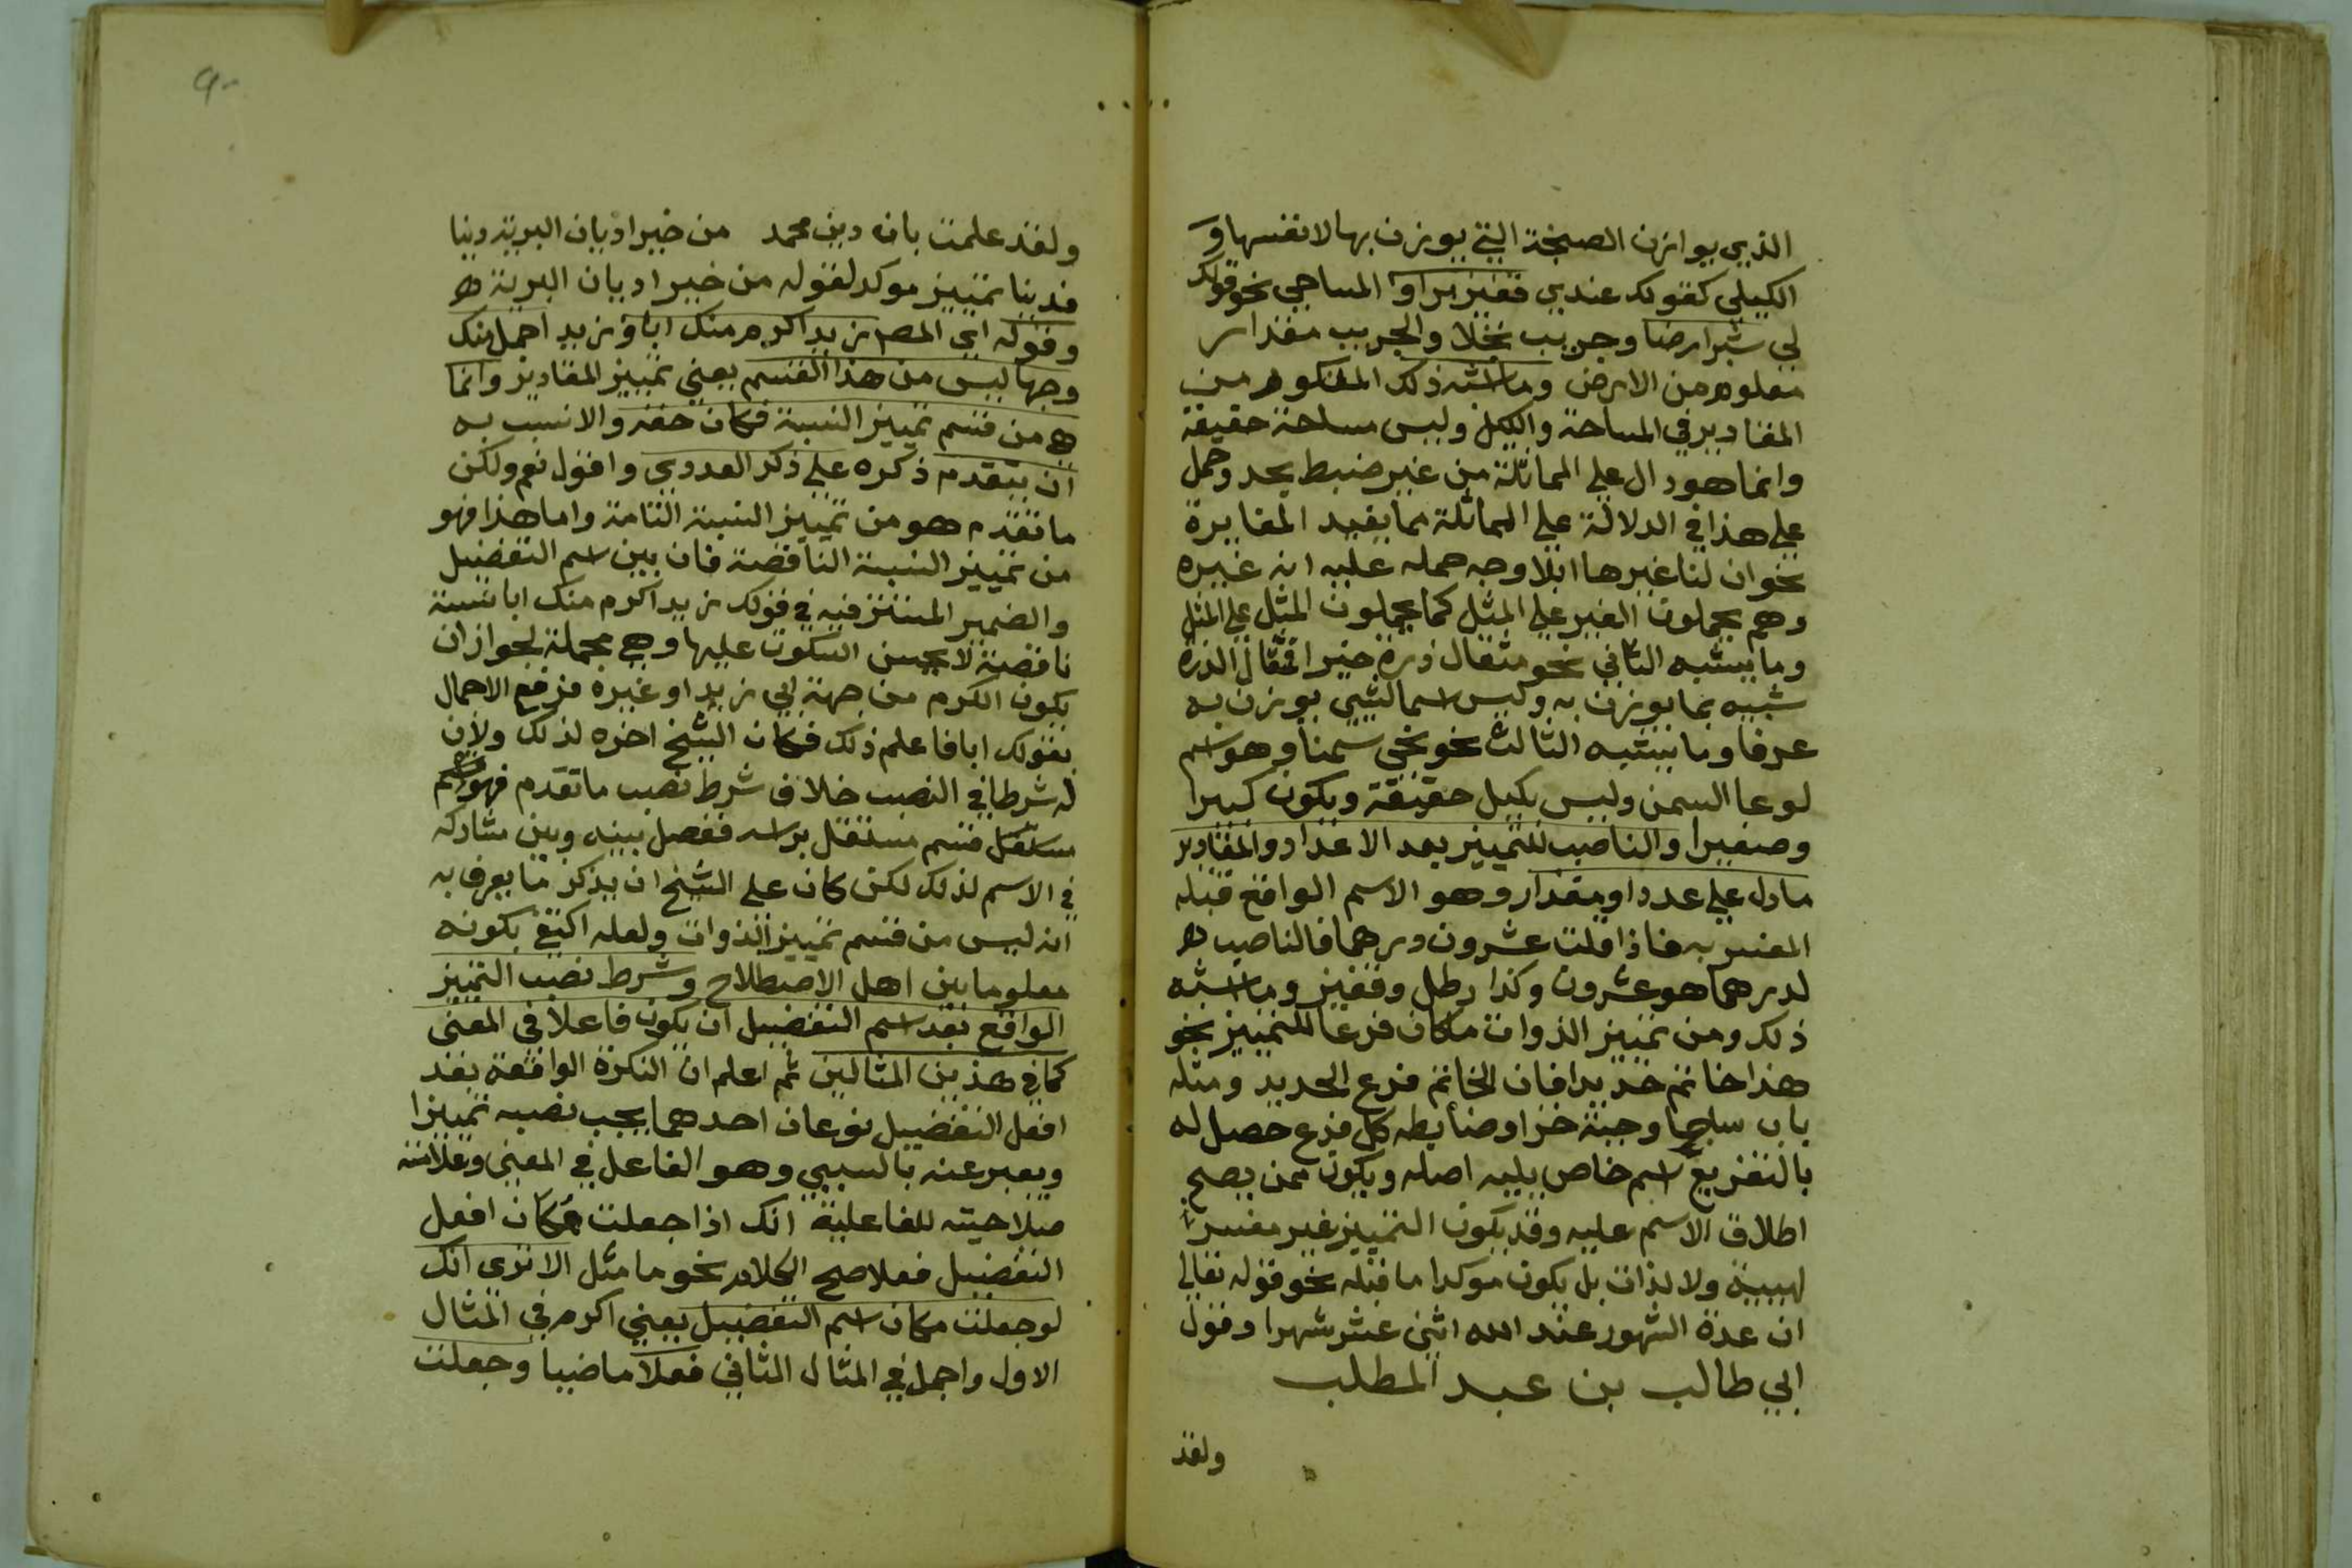 الذي يوازن الصنجة التي يوزن بها لا نفسها و
الكيلي كقولك عندي قفيز برا و المساحي نحو قولك
لي شبر ارضا وجريب نخلا والجريب مقدار
معلوم من الارض وما اشبه ذلك المذكور من
المقادير في المساحة والكيل وليس مساحة حقيقة
وانما هو دال على المماثلة من غير ضبط بحد وحمل
على هذا في الدلالة على المماثلة ما يفيد المغايرة
نحو ان لنا غيرها ابلا وجه حمله عليه انه غيره
وهم يحملون الغير على المثل كما يحملون المثل على المثل
وما يشبه الثاني نحو مثقال ذرة خيرا فمثقال الذرة
شبيه بما يوزن به وليس اسما لشيء يوزن به
عرفا وما يشبه الثالث نحو نحي سمنا وهو اسم
لوعا السمن وليس بكيل حقيقة ويكون كبيرا
وصغيرا والناصب للتمييز بعد الاعداد والمقادير
ما دل على عدد او مقدار وهو الاسم الواقع قبله
المفسر به فاذا قلت عشرون درهما فالناصب
لدرهما هو عشرون وكذا رطل وقفيز وما اشبه
ذلك ومن تمييز الذوات ما كان فرعا للتمييز نحو
هذا خاتم حديدا فان الخاتم فرع الحديد ومثله
باب ساجا وجبة خزا وضابطه كل فرع حصل له
بالتفريع اسم خاص يليه اصله ويكون ممن يصح
اطلاق الاسم عليه وقد يكون التمييز غير مفسر
لهيئة ولا لذات بل يكون موكدا ما قبله نحو قوله تعالى
ان عدة الشهور عند الله اثنى عشر شهرا وقول
ابي طالب بن عبد المطلب
ولقد
٩٠
ولقد علمت بان دين محمد من خير اديان البرية دينا
فدينا تمييز موكد لقوله من خير اديان البرية
وقوله اي المص زيد اكرم منك ابا و زيد اجمل منك
وجها ليس من هذا القسم يعني تمييز المقادير وانما
هو من قسم تمييز النسبة فكان حقه والانسب به
ان يتقدم ذكره على ذكر العددي واقول نعم ولكن
ما تقدم هو من تمييز النسبة التامة واما هذا فهو
من تمييز النسبة الناقصة فان بين اسم التفضيل
والضمير المستتر فيه في قولك زيد اكرم منك ابا نسبة
ناقصة لا يحسن السكوت عليها وهي مجملة لجواز ان
يكون الكرم من جهة ابي زيد او غيره فرفع الاجمال
بقولك ابا فاعلم ذلك فكان الشيخ اخره لذلك ولان
له شرطا في النصب خلاف شرط نصب ما تقدم فهو قسم
مستقل قسم مستقل براسه ففصل بينه وبين مشاركه
في الاسم لذلك لكن كان على الشيخ ان يذكر ما يعرف به
انه ليس من قسم تمييز الذوات ولعله اكتفى بكونه
معلوما بين اهل الاصطلاح وشرط نصب التمييز
الواقع بعد اسم التفضيل ان يكون فاعلا في المعنى
كما في هذين المثالين ثم اعلم ان النكرة الواقعة بعد
افعل التفضيل نوعان احدهما يجب نصبه تمييزا
ويعبر عنه بالسببي وهو الفاعل في المعنى وعلامته
صلاحيته للفاعلية انك اذا جعلت مكان افعل
التفضيل فعلا صح الكلام نحو ما مثل الا ترى انك
لو جعلت مكان اسم التفضيل يعني اكرم في المثال
الاول واجمل في المثال الثاني فعلا ماضيا وجعلت